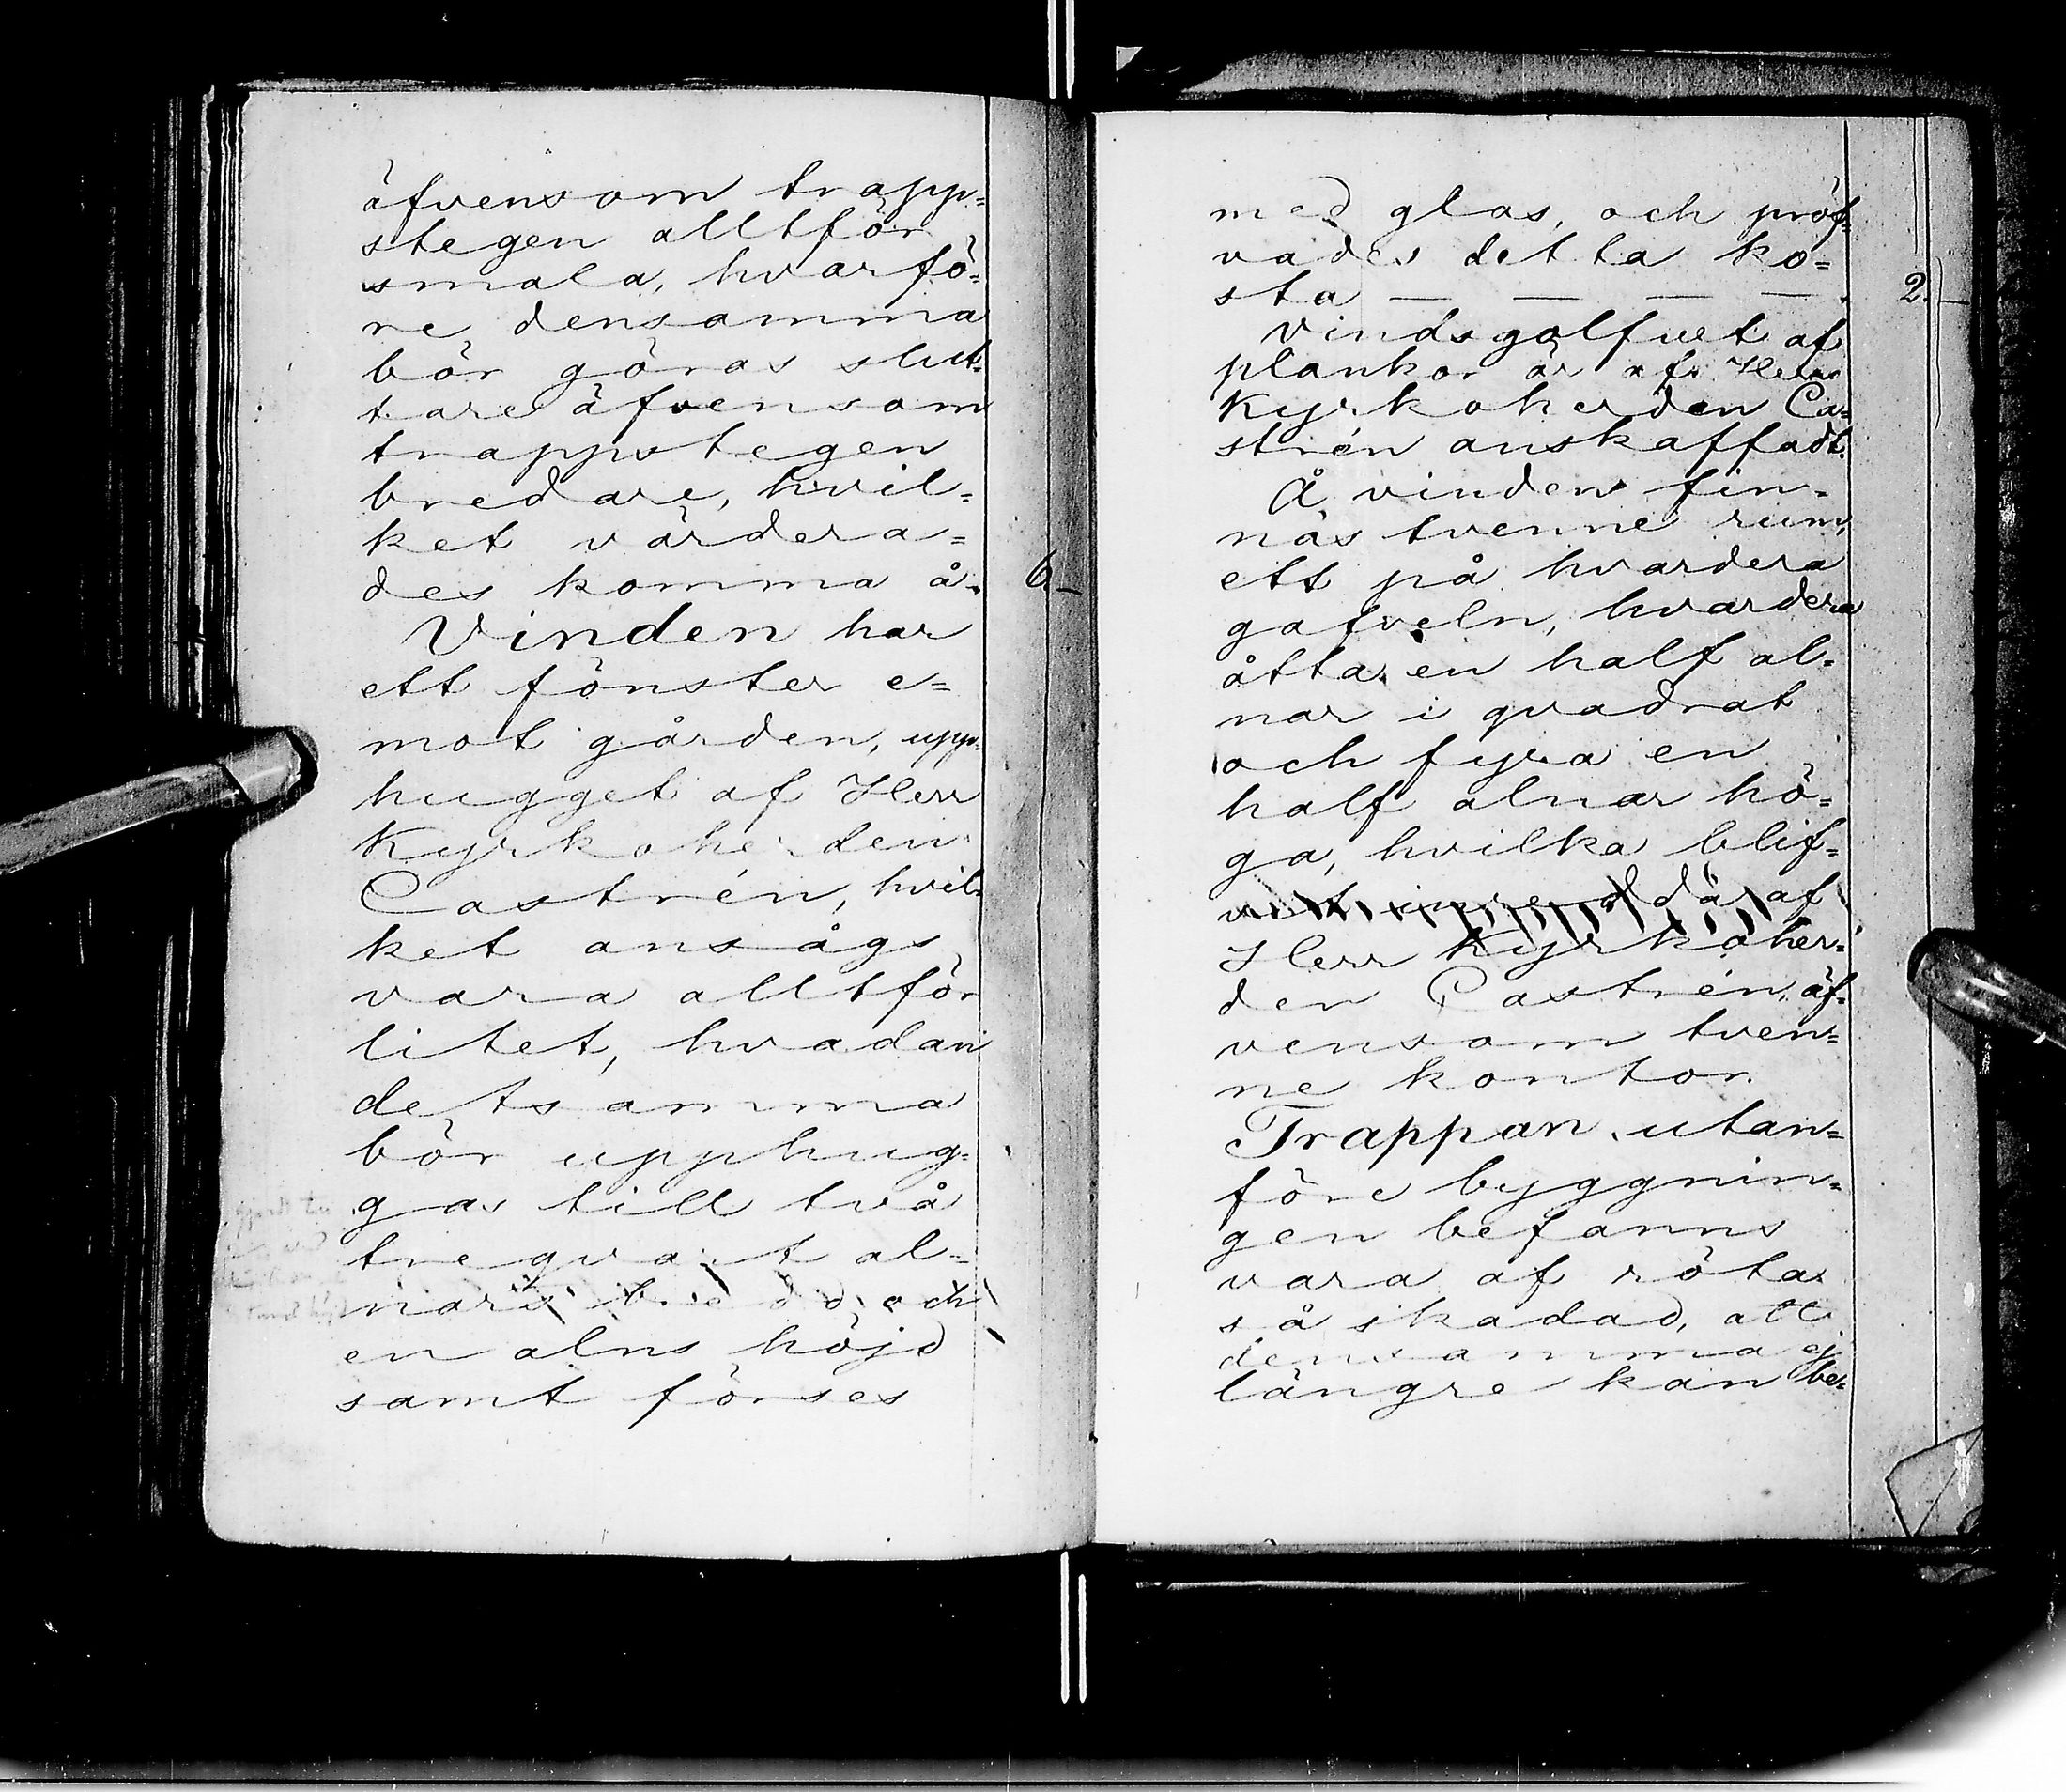 äfvensom trapp=
stegen alltför
smala, hvarfö=
re densamma
bör göras slut=
tare äfvensom
trappstegen
bredare, hvil=
ket värdera=
des komma å. 6.-
Vinden har
ett fönster e=
mot gården, upp=
hugget af Herr
Kyrkoherden
Castrén, hvil=
ket ansågs
vara alltför
litet, hvadan
detsamma
bör upphug=
gas till två
treqvart al=
nars bredd och
en alns höjd
samt förses
med glas, och pröf=
vades detta ko=
sta — — — — 2.-
Vindsgolfvet af
plankor är af Herr
Kyrkoherden Ca=
strén anskaffadt.
Å vinden fin=
nas tvenne rum,
ett på hvardera
gafveln, hvardera
åtta en half al=
nar i qvadrat
och fyra en
half alnar hö=
ga, hvilka blif=
vit inredda af
Herr Kyrkoher=
den Castrén, äf=
vensom tven=
ne kontor.
Trappan utan=
före byggnin=
gen befanns
vara af röta
så skadad, att
densamma ej
längre kan be=